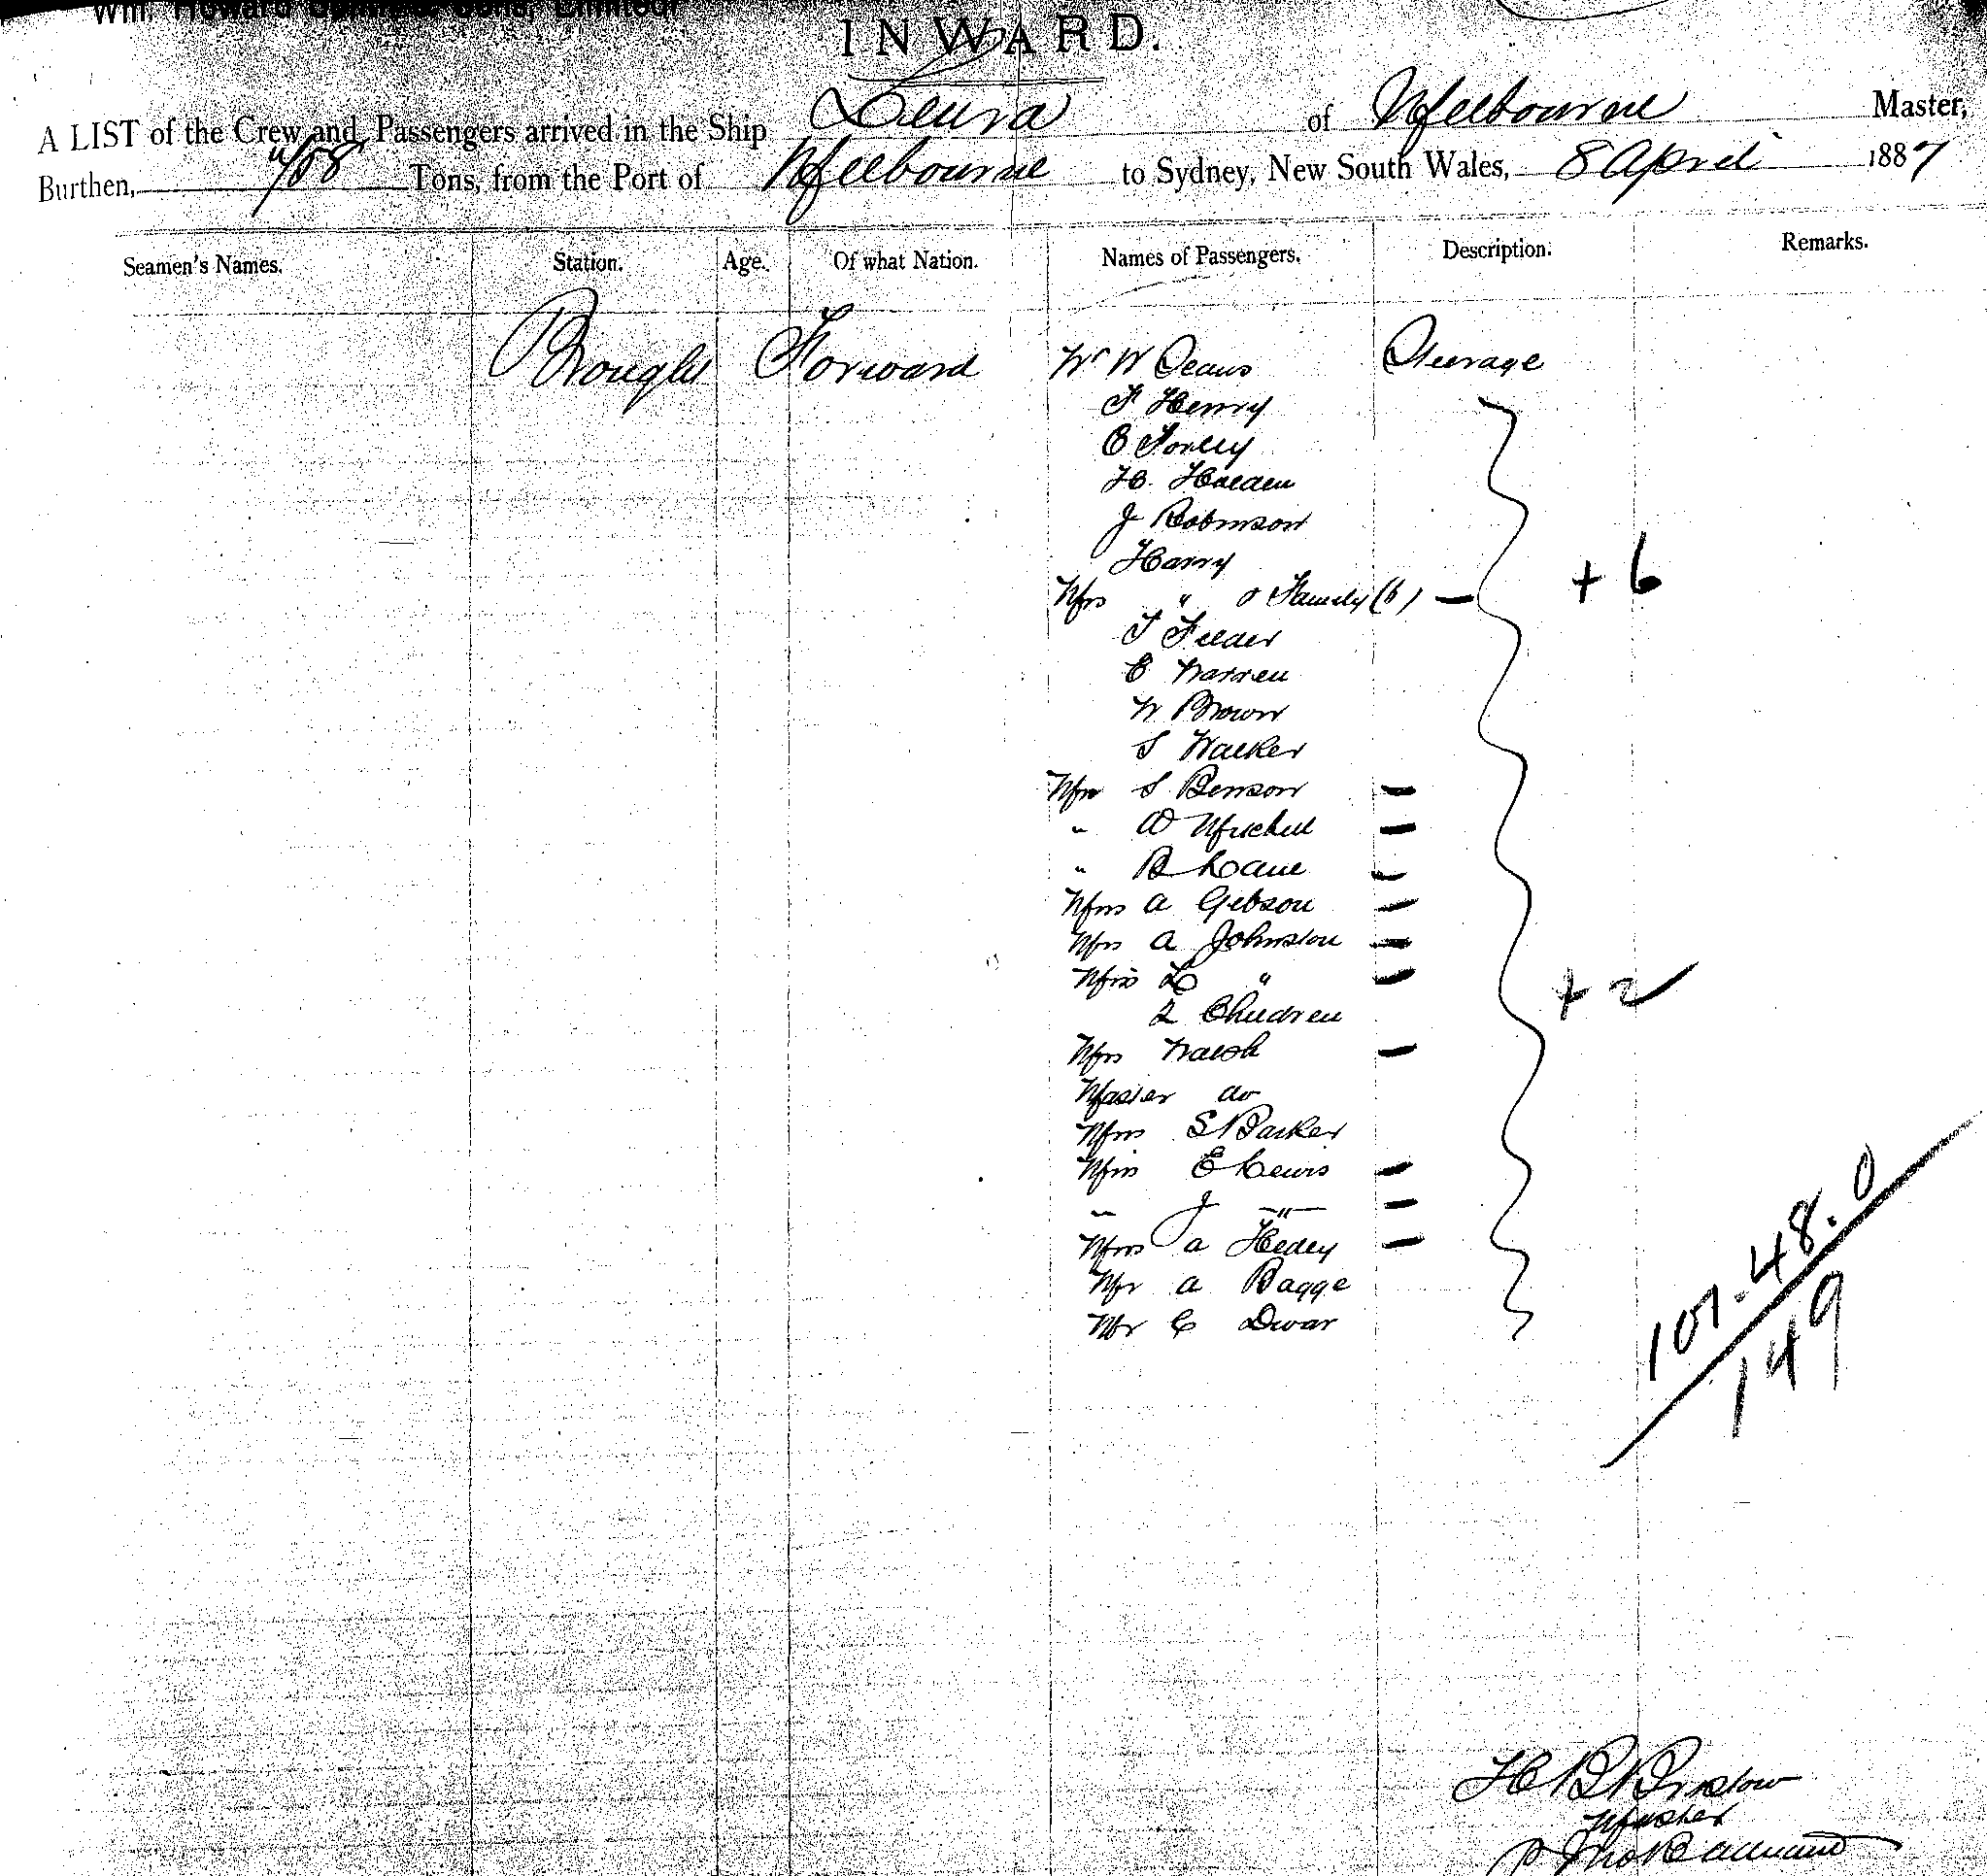 INWARD.
A LIST of the Crew and Passengers arrived in the Ship Leura of Melbourne Master,
Burthen, Tons, from the Port of Melbourne to Sydney, New South Wales, 8 April 1887
Seamen's Names. Station. Age. Of what Nation. Names of Passengers. Description. Remarks.
Brought Forward Mr W Deans Steerage
F Henry
E Forley
H. Holden
J Robinson
Harry
Mrs " & Family (6) — + 6
T Felder
E Warren
W Brown
S Walker
Mrs S Benson —
" D Mitchell —
" B Lane —
Mrs A Gibson —
Mrs A Johnston —
Miss L " —
2 Children + 2
Mrs Walsh —
Master do
Mrs S Barker
Miss E Lewis —
" J " —
Mrs A Hedley —
Mr A Bagge
Mr C Dwar
107. 48. 0
149
H B Bristow
Master